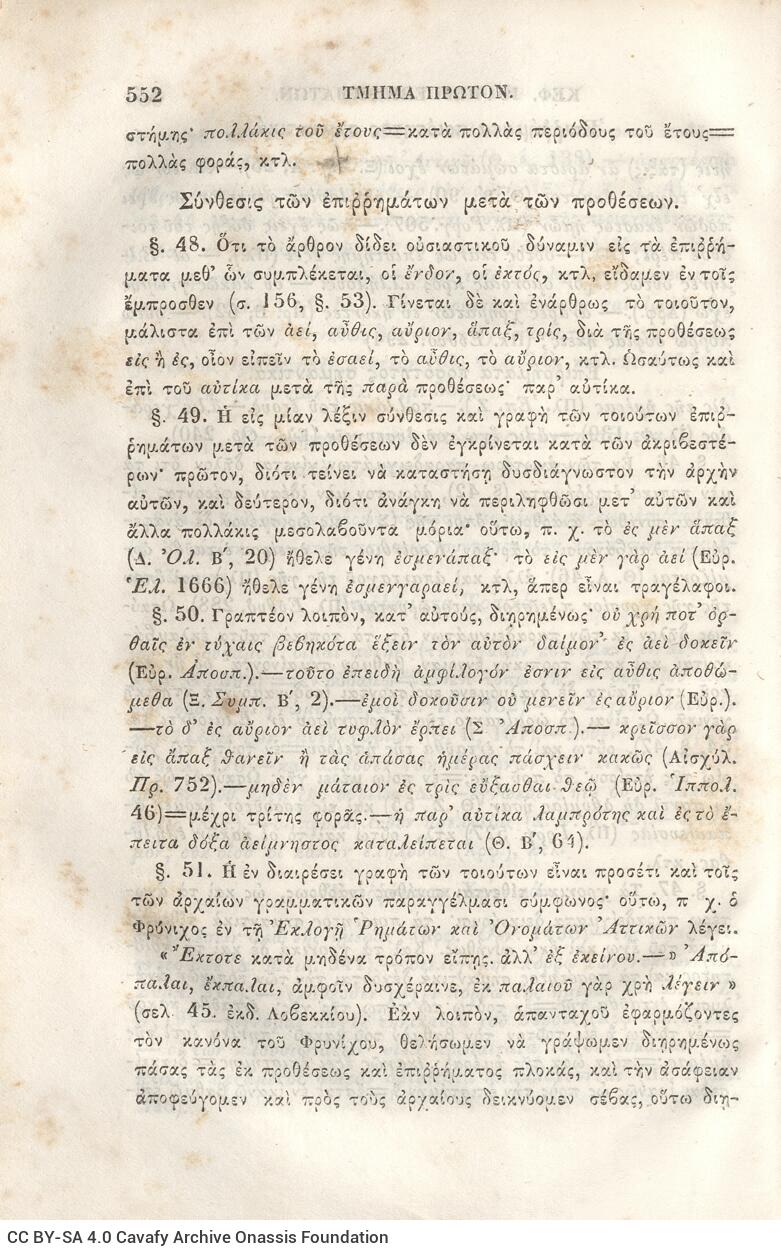 552 ΤΜΗΜΑ ΠΡΩΤΟΝ.
στήμης· πολλάκις τοῦ ἔτους=κατὰ πολλὰς περιόδους τοῦ ἔτους=
πολλὰς φοράς, κτλ.
Σύνθεσις τῶν ἐπιῤῥημάτων μετὰ τῶν προθέσεων.
§. 48. Ὅτι τὸ ἄρθρον δίδει οὐσιαστικοῦ δύναμιν εἰς τὰ ἐπιῤῥή-
ματα μεθ᾽ ὧν συμπλέκεται, οἱ ἔνδον, οἱ ἐκτός, κτλ, εἴδαμεν ἐν τοῖς
ἔμπροσθεν (σ. 156, §. 53). Γίνεται δὲ καὶ ἐνάρθρως τὸ τοιοῦτον,
μάλιστα ἐπὶ τῶν ἀεί, αὖθις, αὔριον, ἅπαξ, τρίς, διὰ τῆς προθέσεως
εἰς ἢ ἐς, οἷον εἰπεῖν τὸ ἐσαεί, τὸ αὖθις, τὸ αὔριον, κτλ. Ὡσαύτως καὶ
ἐπὶ τοῦ αὐτίκα μετὰ τῆς παρὰ προθέσεως· παρ᾽ αὐτίκα.
§. 49. Ἡ εἰς μίαν λέξιν σύνθεσις καὶ γραφὴ τῶν τοιούτων ἐπιῤ-
ῥημάτων μετὰ τῶν προθέσεων δὲν ἐγκρίνεται κατὰ τῶν ἀκριβεστέ-
ρων· πρῶτον, διότι τείνει νὰ καταστήσῃ δυσδιάγνωστον τὴν ἀρχὴν
αὐτῶν, καὶ δεύτερον, διότι ἀνάγκη νὰ περιληφθῶσι μετ᾽ αὐτῶν καὶ
ἄλλα πολλάκις μεσολαβοῦντα μόρια· οὕτω, π. χ. τὸ ἐς μὲν ἅπαξ
(Δ. Ὀλ. Β΄, 20) ἤθελε γένῃ ἐσμενάπαξ· τὸ εἰς μὲν γὰρ ἀεὶ (Εὐρ.
Ἑλ. 1666) ἤθελε γένῃ ἐσμενγαραεί, κτλ, ἅπερ εἶναι τραγέλαφοι.
§. 50. Γραπτέον λοιπὸν, κατ᾽ αὐτούς, διῃρημένως· οὐ χρή ποτ᾽ ὀρ-
θαῖς ἐν τύχαις βεβηκότα ἕξειν τὸν αὐτὸν δαίμον᾽ ἐς ἀεὶ δοκεῖν
(Εὐρ. Ἀποσπ.).—τοῦτο ἐπειδὴ ἀμφίλογόν ἐσνιν εἰς αὖθις ἀποθώ-
μεθα (Ξ. Συμπ. Β΄, 2).—ἐμοὶ δοκοῦσιν οὐ μενεῖν ἐς αὔριον (Εὐρ.).
—τὸ δ᾽ ἐς αὔριον ἀεὶ τυφλὸν ἕρπει (Σ Ἀποσπ.).— κρεῖσσον γὰρ
εἰς ἅπαξ θανεῖν ἢ τὰς ἁπάσας ἡμέρας πάσχειν κακῶς (Αἰσχύλ.
Πρ. 752).—μηδὲν μάταιον ἐς τρὶς εὔξασθαι θεῷ (Εὐρ. Ἱππολ.
46)=μέχρι τρίτης φορᾶς.—ἡ παρ᾽ αὐτίκα λαμπρότης καὶ ἐς τὸ ἔ-
πειτα δόξα ἀείμνηστος καταλείπεται (Θ. Β΄, 64).
§. 51. Ἡ ἐν διαιρέσει γραφὴ τῶν τοιούτων εἶναι προσέτι καὶ τοῖς
τῶν ἀρχαίων γραμματικῶν παραγγέλμασι σύμφωνος· οὕτω, π χ. ὁ
Φρύνιχος ἐν τῇ Ἐκλογῇ Ῥημάτων καὶ Ὀνομάτων Ἀττικῶν λέγει.
« Ἔκτοτε κατὰ μηδένα τρόπον εἴπῃς. ἀλλ᾽ ἐξ ἐκείνου.—» Ἀπό-
παλαι, ἔκπαλαι, ἀμφοῖν δυσχέραινε, ἐκ παλαιοῦ γὰρ χρὴ λέγειν »
(σελ 45. ἐκδ. Λοβεκκίου). Ἐὰν λοιπὸν, ἁπανταχοῦ ἐφαρμόζοντες
τὸν κανόνα τοῦ Φρυνίχου, θελήσωμεν νὰ γράψωμεν διῃρημένως
πάσας τὰς ἐκ προθέσεως καὶ ἐπιῤῥήματος πλοκάς, καὶ τὴν ἀσάφειαν
ἀποφεύγομεν καὶ πρὸς τοὺς ἀρχαίους δεικνύομεν σέβας, οὕτω διῃ-
CC BY-SA 4.0 Cavafy Archive Onassis Foundation